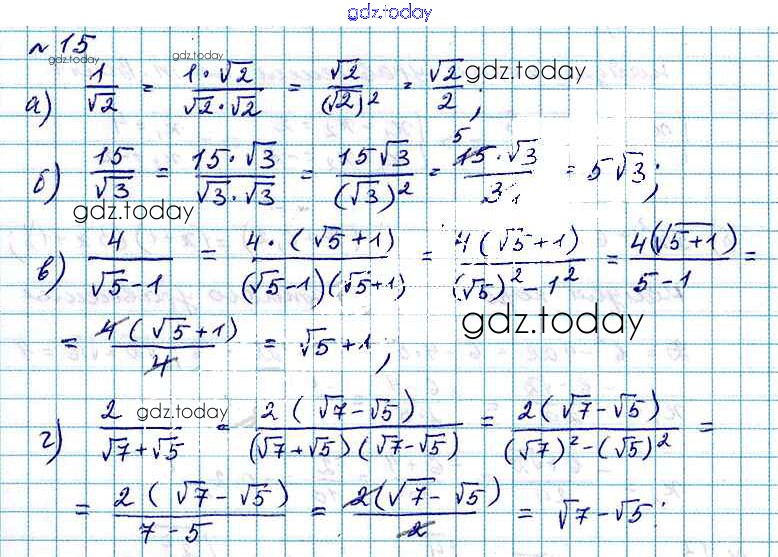 gdz.today
№15
gdz.today
а) 1/√2 = 1·√2/√2·√2 = √2/(√2)² = √2/2;
gdz.today
б) 15/√3 = 15·√3/√3·√3 = 15√3/(√3)² = 15·√3/3 = 5√3;
5
1
gdz.today
в) 4/√5-1 = 4·(√5+1)/(√5-1)(√5+1) = 4(√5+1)/(√5)²-1² = 4(√5+1)/5-1 =
gdz.today
= 4(√5+1)/4 = √5+1;
gdz.today
г) 2/√7+√5 = 2(√7-√5)/(√7+√5)(√7-√5) = 2(√7-√5)/(√7)²-(√5)² =
= 2(√7-√5)/7-5 = 2(√7-√5)/2 = √7-√5;